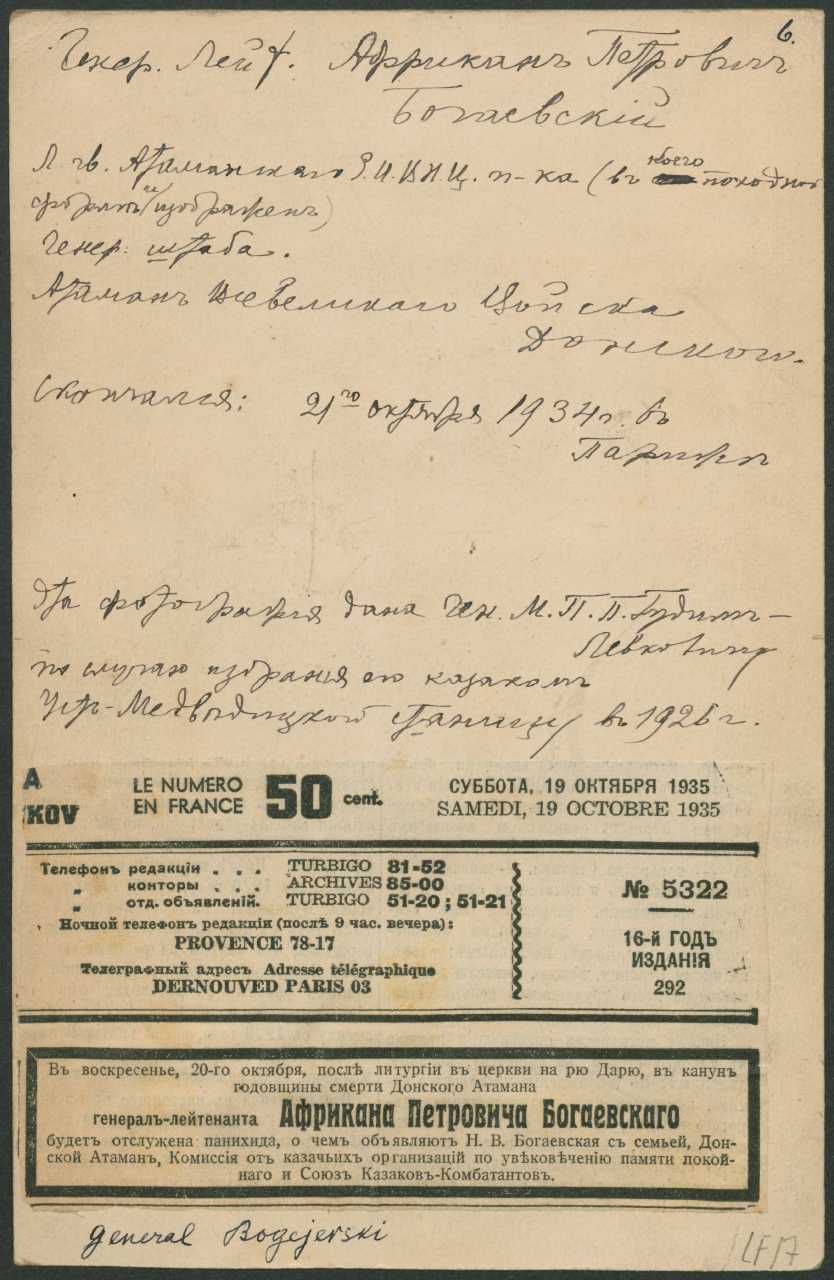 6.
Генер. Лейт. Африканъ Петровичъ
Богаевскій
Л. гв. Атаманскаго Е.И.В.Н.Ц. п-ка (въ коего походной
формѣ и изображенъ)
Генер. штаба.
Атаманъ Всевеликаго Войска
Донского.
Скончался: 21го октября 1934 г. въ
Парижѣ
Эта фотографія дана Ген. М. П. П. Гудимъ-
Левковичу
по случаю избранія его казакомъ
Усть-Медвѣдицкой станицы въ 1926 г.
А
KOV
LE NUMERO
EN FRANCE
50 cent.
СУББОТА, 19 ОКТЯБРЯ 1935
SAMEDI, 19 OCTOBRE 1935
Телефонъ редакціи . . . TURBIGO 81-52
„ конторы . . . ARCHIVES 85-00
„ отд. объявленій. TURBIGO 51-20 ; 51-21
Ночной телефонъ редакціи (послѣ 9 час. вечера):
PROVENCE 78-17
Телеграфный адресъ Adresse télégraphique
DERNOUVED PARIS 03
№ 5322
16-й ГОДЪ
ИЗДАНІЯ
292
Въ воскресенье, 20-го октября, послѣ литургіи въ церкви на рю Дарю, въ канунъ
годовщины смерти Донского Атамана
генералъ-лейтенанта Африкана Петровича Богаевскаго
будетъ отслужена панихида, о чемъ объявляютъ Н. В. Богаевская съ семьей, Дон-
ской Атаманъ, Комиссія отъ казачьихъ организацій по увѣковѣченію памяти покой-
наго и Союзъ Казаковъ-Комбатантовъ.
general Bogejerski
LF17